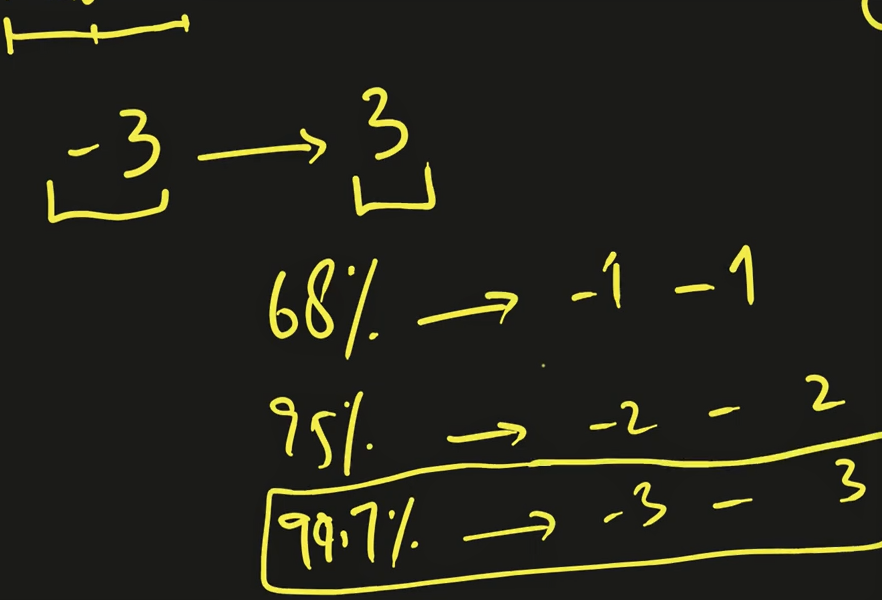 -3 → 3
68% → -1 - 1
95% → -2 - 2
99.7% → -3 - 3